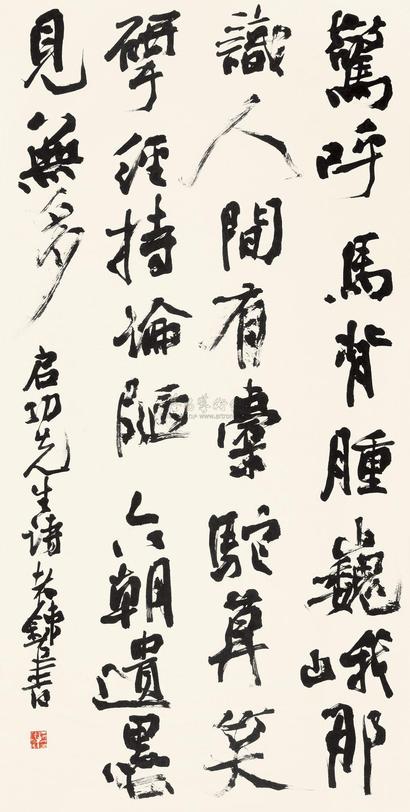 驚呼馬背腫巍峨那
識人間有橐駝莫笑
揅經持論陋六朝遺墨
見無多
启功先生诗